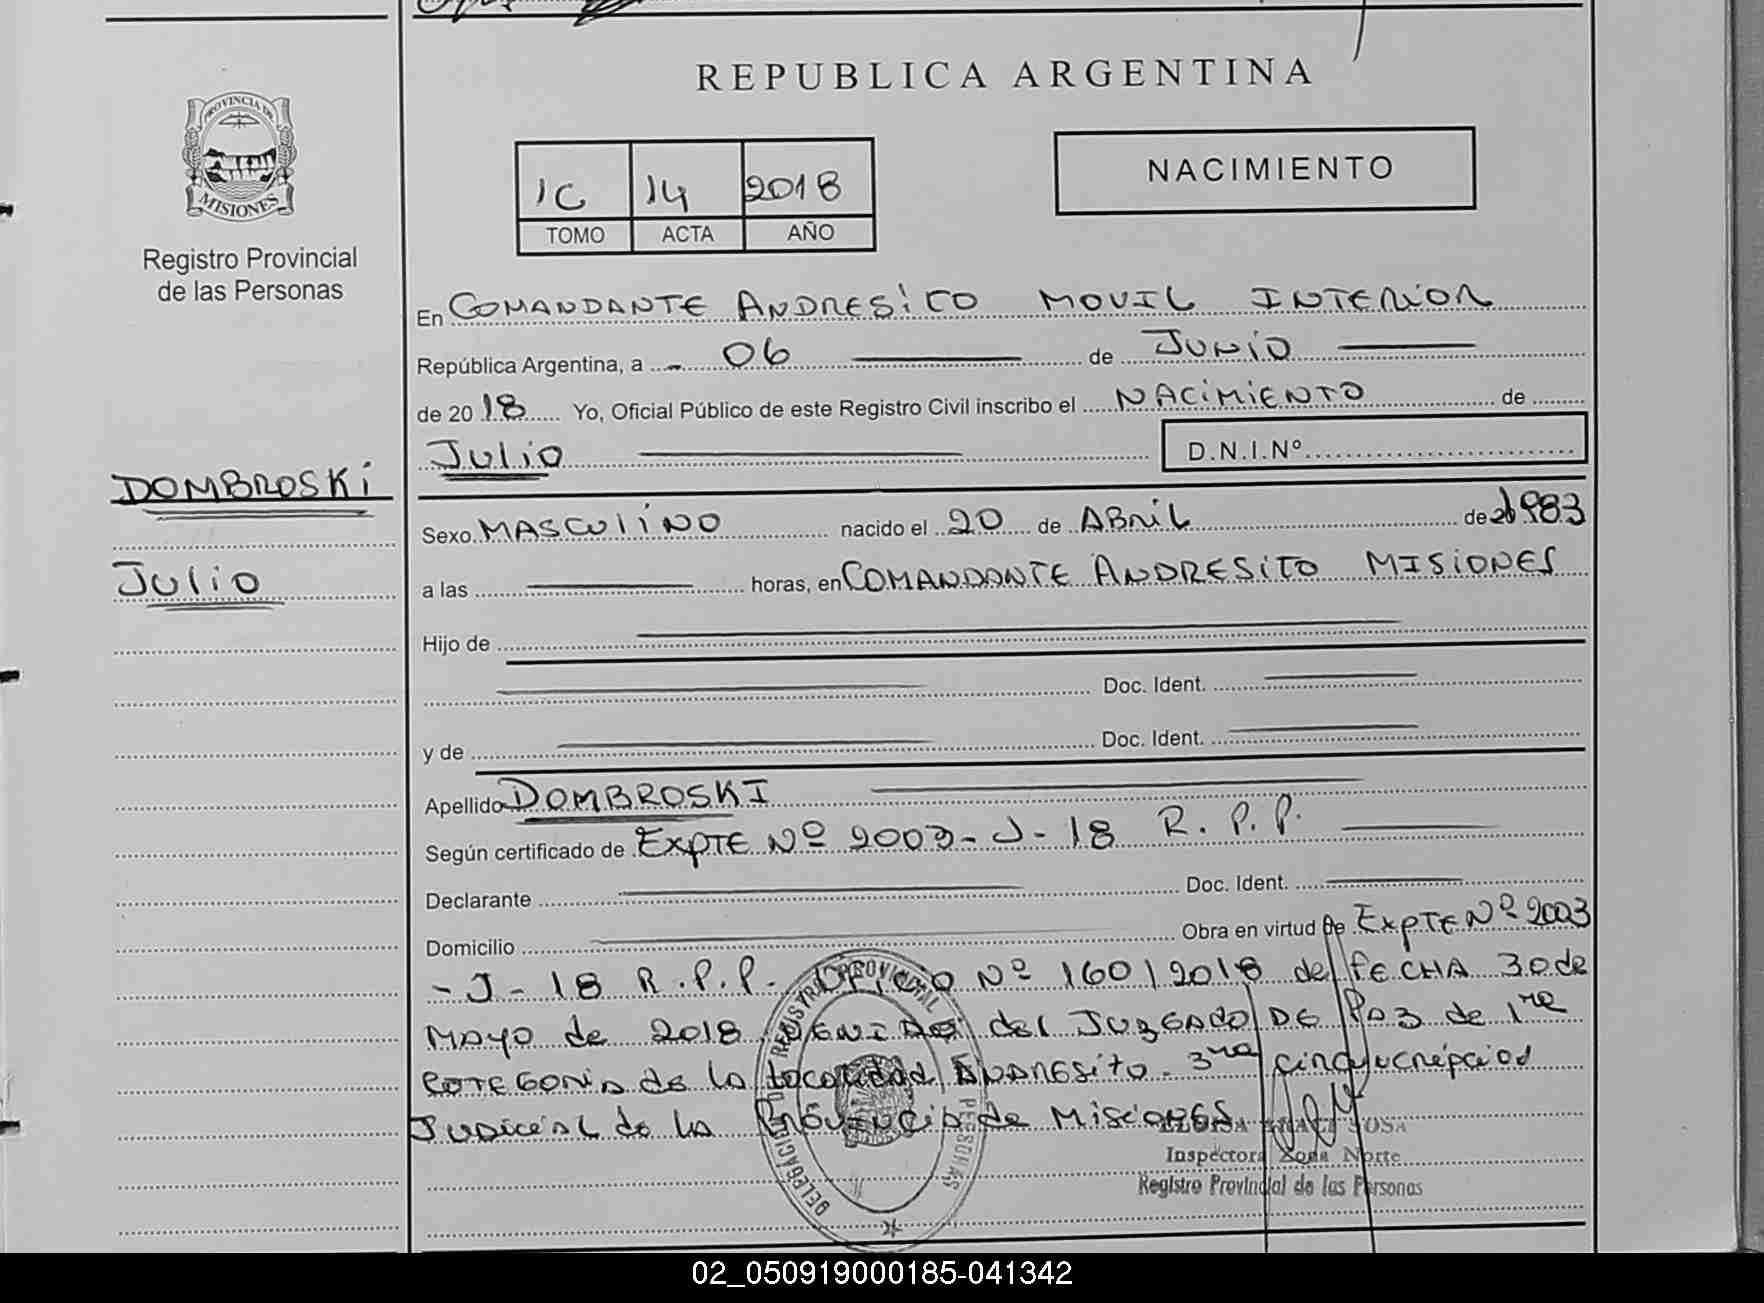 REPUBLICA ARGENTINA
PROVINCIA DE
MISIONES
Registro Provincial
de las Personas
1C 14 2018
TOMO ACTA AÑO
NACIMIENTO
En COMANDANTE ANDRESITO MOVIL INTERIOR
República Argentina, a 06 de JUNIO
de 2018 Yo, Oficial Público de este Registro Civil inscribo el NACIMIENTO de
Julio
D.N.I.Nº
DOMBROSKI
Julio
Sexo MASCULINO nacido el 20 de ABRIL de 1983
a las horas, en COMANDANTE ANDRESITO MISIONES
Hijo de
Doc. Ident.
y de Doc. Ident.
Apellido DOMBROSKI
Según certificado de EXPTE Nº 2003-J-18 R.P.P.
Declarante Doc. Ident.
Domicilio Obra en virtud de EXPTE Nº 2003
-J-18 R.P.P. OFICIO Nº 160/2018 de FECHA 30 de
MAYO de 2018 del JUZGADO DE PAZ de 1ra
de la Localidad ANDRESITO. 3ra
JUDICIAL de la PROVINCIA de MISIONES
SOSA
Inspectora Zona Norte
Registro Provincial de las Personas
02_050919000185-041342